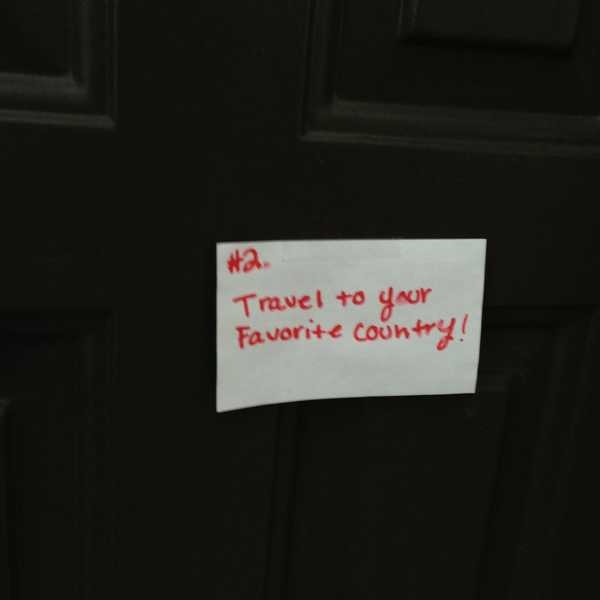 #2.
Travel to your
Favorite Country!